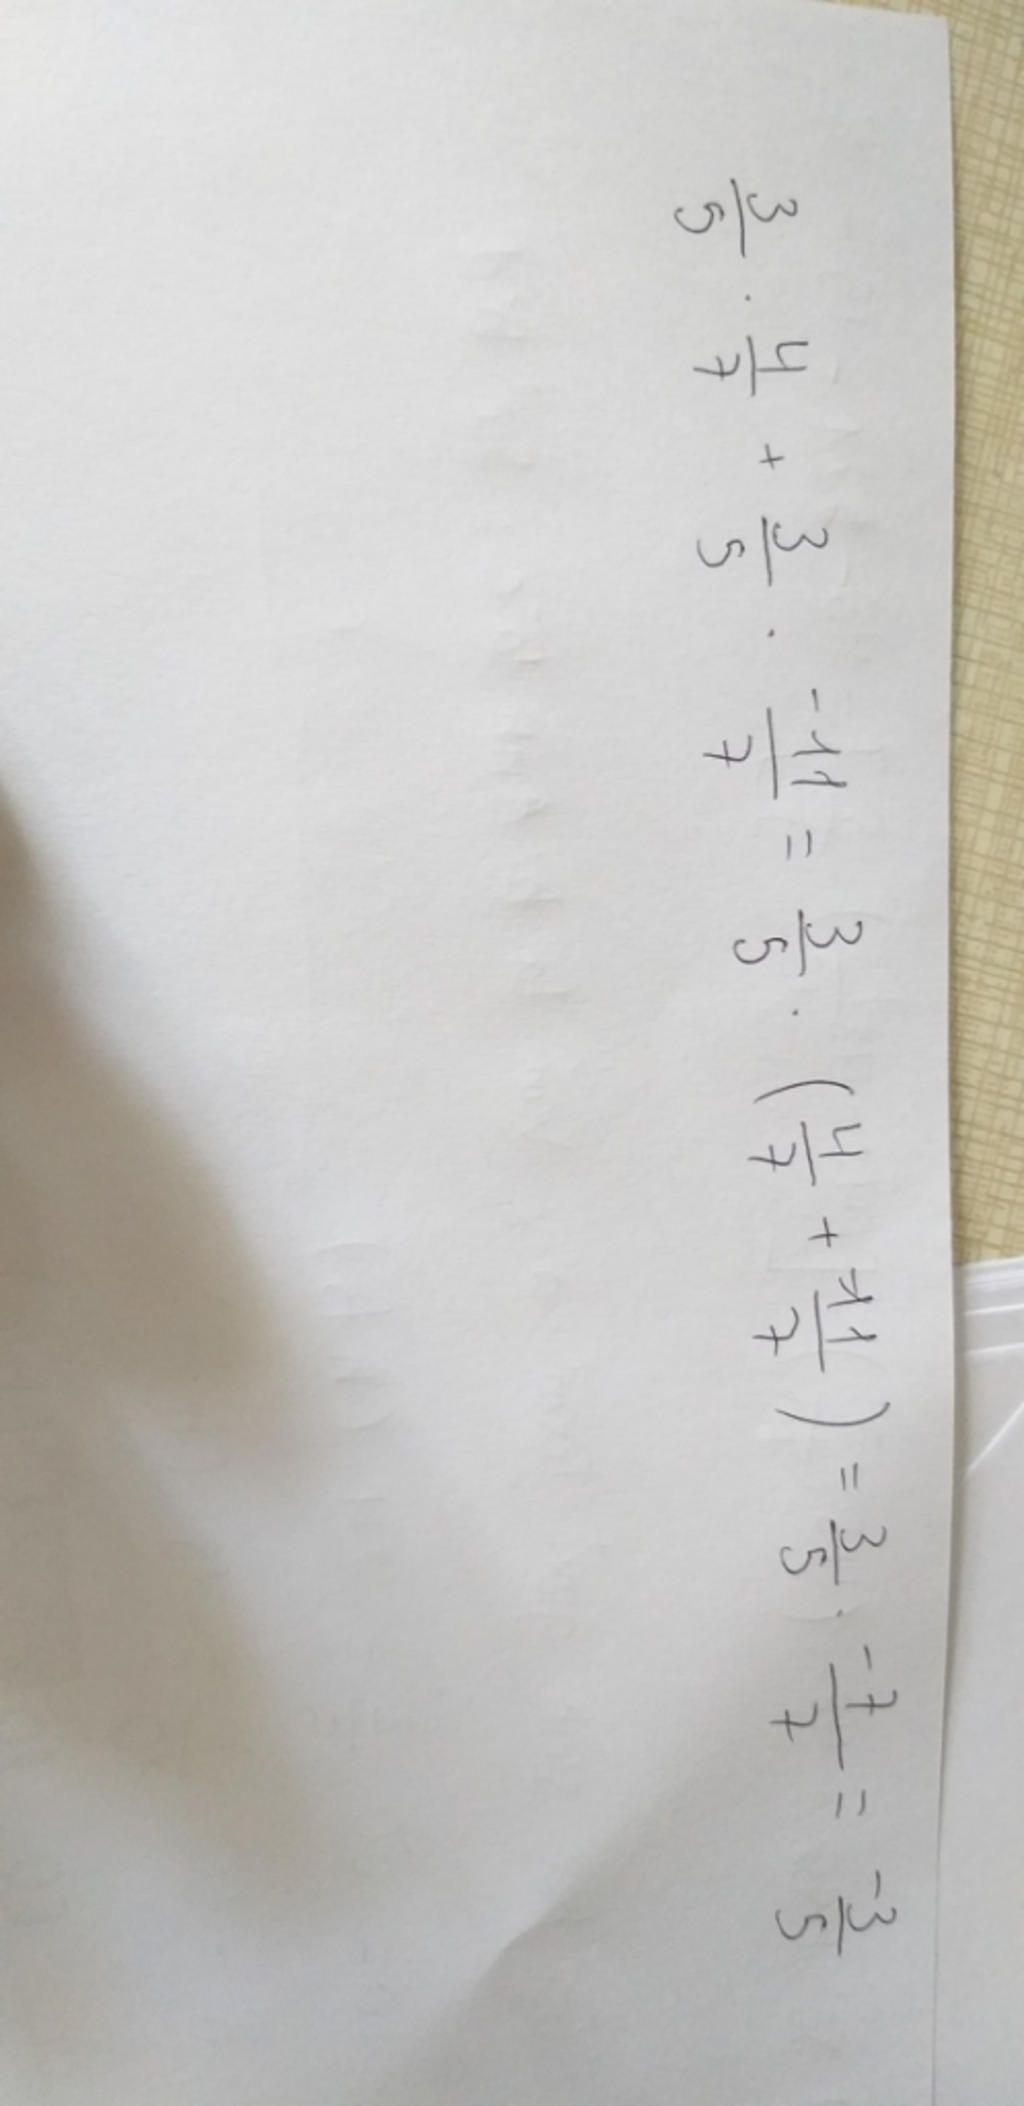 3/5 · 4/7 + 3/5 · -11/7 = 3/5 · (4/7 + -11/7) = 3/5 · -7/7 = -3/5